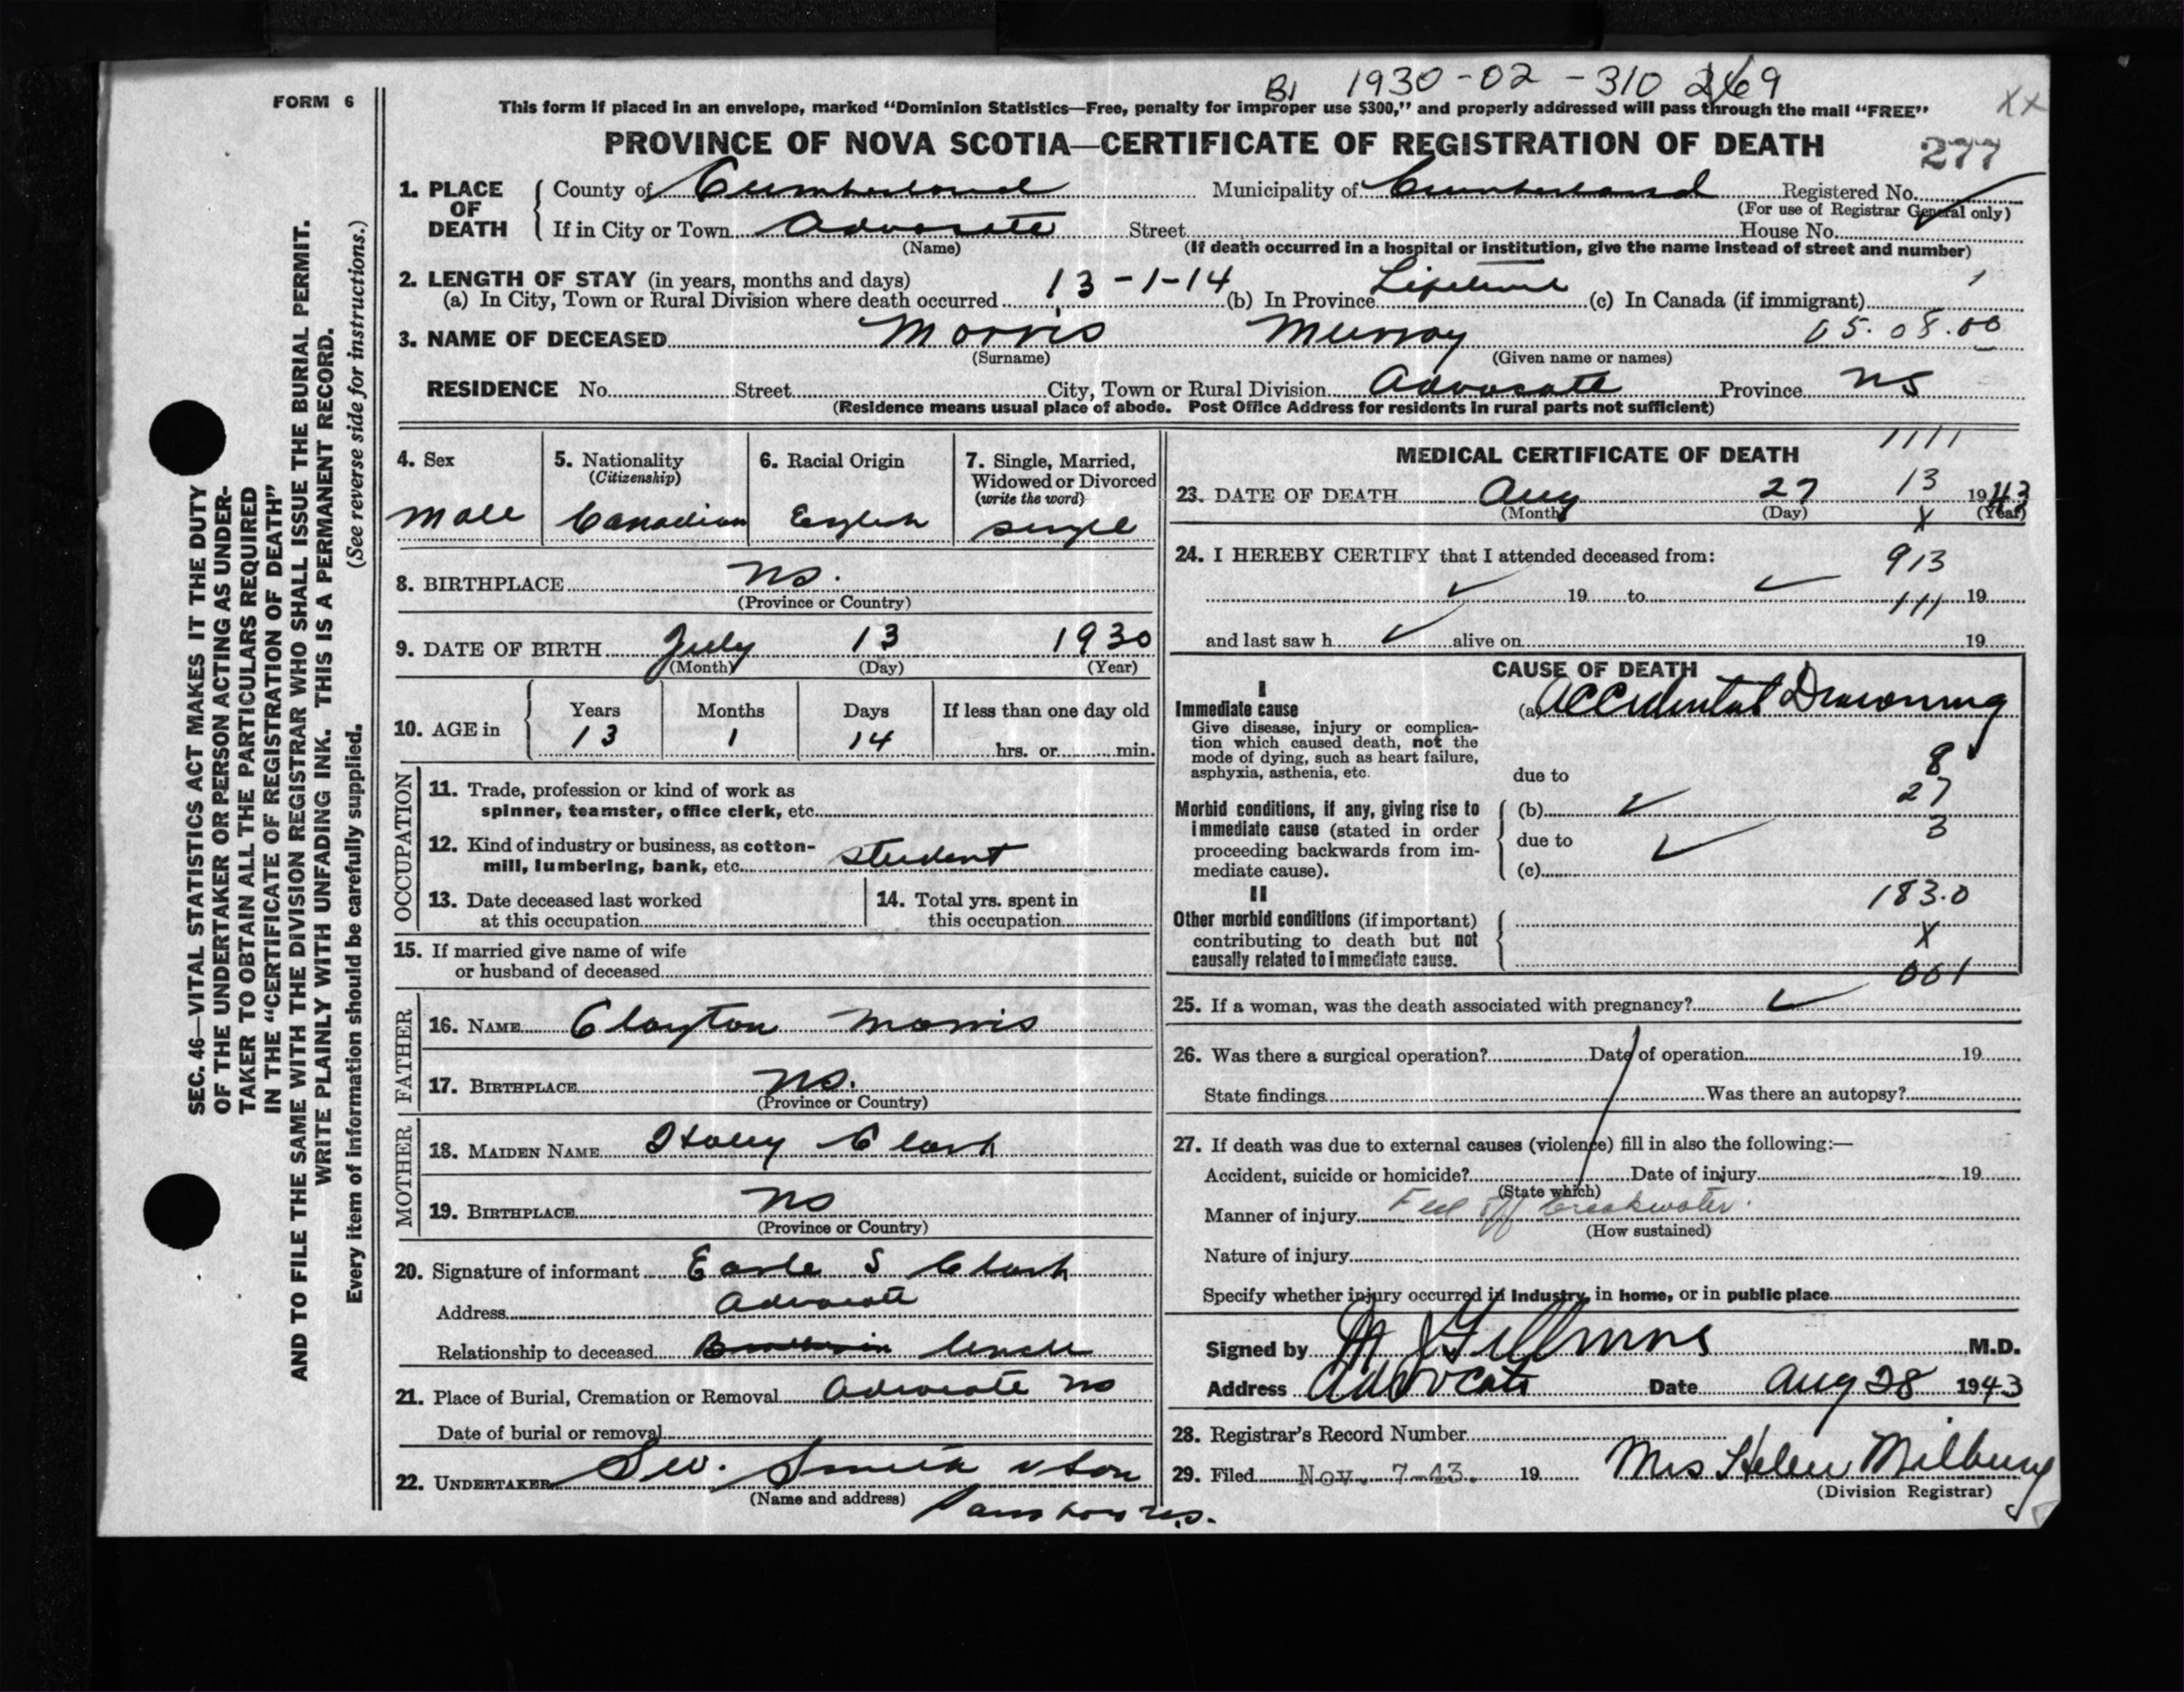 B. 1930-02-310 269
FORM 6
This form if placed in an envelope, marked "Dominion Statistics—Free, penalty for improper use $300," and properly addressed will pass through the mail "FREE"
xx
PROVINCE OF NOVA SCOTIA—CERTIFICATE OF REGISTRATION OF DEATH
277
1. PLACE OF DEATH
County of Cumberland Municipality of Cumberland Registered No.
(For use of Registrar General only)
If in City or Town Advocate Street House No.
(Name) (If death occurred in a hospital or institution, give the name instead of street and number)
2. LENGTH OF STAY (in years, months and days)
(a) In City, Town or Rural Division where death occurred 13-1-14 (b) In Province Lifetime (c) In Canada (if immigrant)
3. NAME OF DECEASED Morris Murray 05.08.00
(Surname) (Given name or names)
RESIDENCE No. Street City, Town or Rural Division Advocate Province NS
(Residence means usual place of abode. Post Office Address for residents in rural parts not sufficient)
4. Sex
Male
5. Nationality
(Citizenship)
Canadian
6. Racial Origin
English
7. Single, Married,
Widowed or Divorced
(write the word)
single
8. BIRTHPLACE NS.
(Province or Country)
9. DATE OF BIRTH July 13 1930
(Month) (Day) (Year)
10. AGE in
Years Months Days If less than one day old
13 1 14 hrs. or min.
OCCUPATION
11. Trade, profession or kind of work as
spinner, teamster, office clerk, etc.
12. Kind of industry or business, as cotton-
mill, lumbering, bank, etc. student
13. Date deceased last worked
at this occupation
14. Total yrs. spent in
this occupation
15. If married give name of wife
or husband of deceased
FATHER
16. NAME Clayton Morris
17. BIRTHPLACE NS.
(Province or Country)
MOTHER
18. MAIDEN NAME Clark
19. BIRTHPLACE NS
(Province or Country)
20. Signature of informant Earle S Clark
Address Advocate
Relationship to deceased Uncle
21. Place of Burial, Cremation or Removal Advocate NS
Date of burial or removal
22. UNDERTAKER Smith & Son
(Name and address) Parrsboro N.S.
MEDICAL CERTIFICATE OF DEATH
1111
23. DATE OF DEATH Aug 27 13 1943
(Month) (Day) (Year)
X
24. I HEREBY CERTIFY that I attended deceased from:
913
19 to 19
111
and last saw h alive on 19
CAUSE OF DEATH
I
Immediate cause
Give disease, injury or complica-
tion which caused death, not the
mode of dying, such as heart failure,
asphyxia, asthenia, etc.
(a) Accidental Drowning
8
due to
27
Morbid conditions, if any, giving rise to
immediate cause (stated in order
proceeding backwards from im-
mediate cause).
(b)
3
due to
(c)
II
183.0
Other morbid conditions (if important)
contributing to death but not
causally related to immediate cause.
X
001
25. If a woman, was the death associated with pregnancy?
26. Was there a surgical operation? Date of operation 19
State findings Was there an autopsy?
27. If death was due to external causes (violence) fill in also the following:—
Accident, suicide or homicide? Date of injury 19
(State which)
Manner of injury Fell off breakwater.
(How sustained)
Nature of injury
Specify whether injury occurred in Industry, in home, or in public place
Signed by M.D.
Address Advocate Date Aug 28 1943
28. Registrar's Record Number
29. Filed Nov. 7-43. 19 Mrs Helen Milbury
(Division Registrar)
SEC. 46—VITAL STATISTICS ACT MAKES IT THE DUTY
OF THE UNDERTAKER OR PERSON ACTING AS UNDER-
TAKER TO OBTAIN ALL THE PARTICULARS REQUIRED
IN THE "CERTIFICATE OF REGISTRATION OF DEATH"
AND TO FILE THE SAME WITH THE DIVISION REGISTRAR WHO SHALL ISSUE THE BURIAL PERMIT.
WRITE PLAINLY WITH UNFADING INK. THIS IS A PERMANENT RECORD.
Every item of information should be carefully supplied. (See reverse side for instructions.)